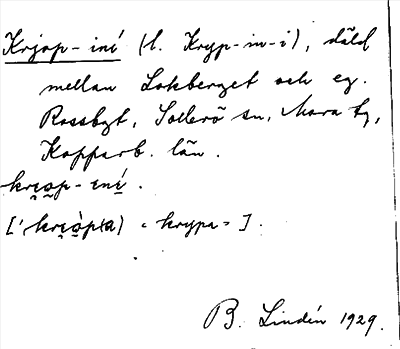 Krjop-iní (l. Kryp-in-i), däld
mellan Lokberget och eg.
Rossbyt, Sollerö sn, Mora tg,
Kopparb. län.
krẹọp-ení.
['krẹọ̀p(a) "krypa"].
B. Lindén 1929.